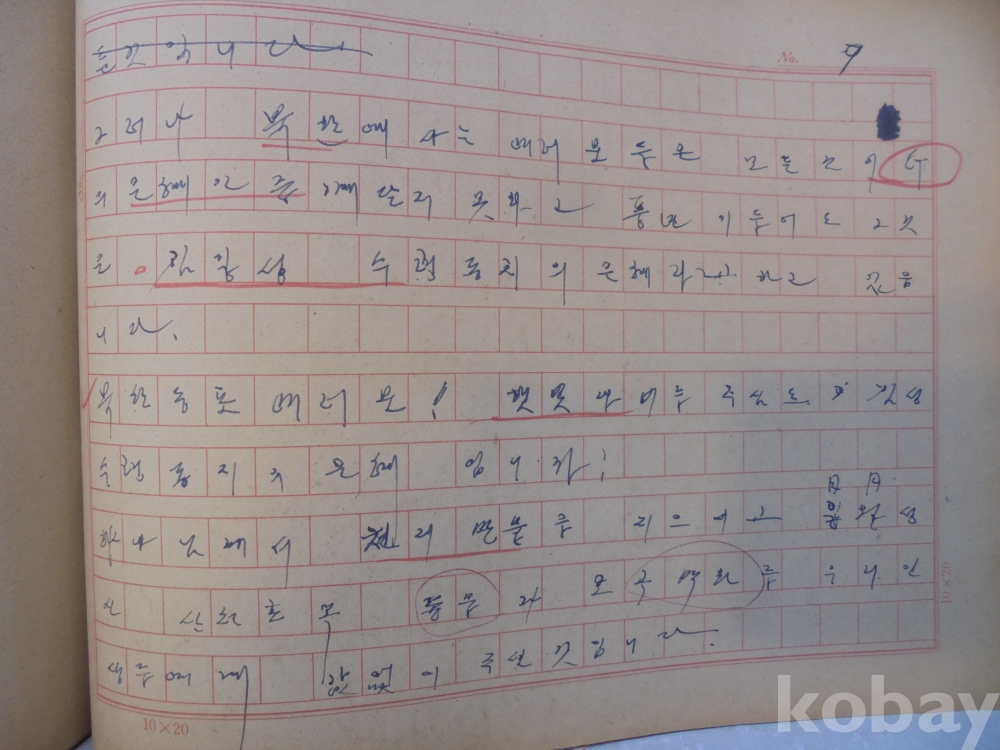 No. 9
그러나 북한에 사는 여러분들은 모든것이
의 은혜인 줄 깨닫지 못하고 풍년이 들어도 그것
은 김일성 수령 동지의 은혜라고 하고 있읍
니다.
북한 동포 여러분! 햇빛과 비를 주심도 김일성
수령 동지의 은혜 입니까!
하나님께서 천지만물을 지으시고 日月 일월성
신 산천초목 동물과 오곡백화를 우리 인
생들에게 값없이 주신 것입니다.
10×20
10×20
kobay